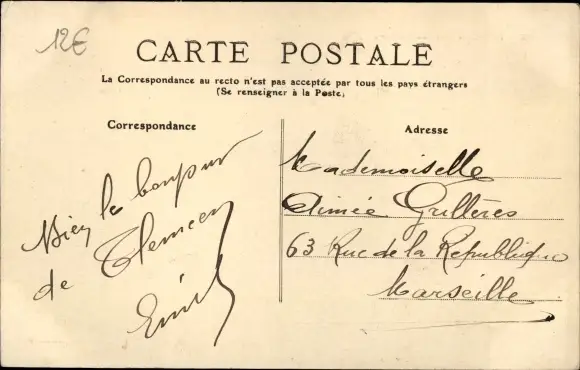 12€
CARTE POSTALE
La Correspondance au recto n'est pas acceptée par tous les pays étrangers
(Se renseigner à la Poste)
Correspondance
Bien le bonjour
de Tlemcen
Emile
Adresse
Mademoiselle
Aimée Grillères
63 Rue de la République
Marseille